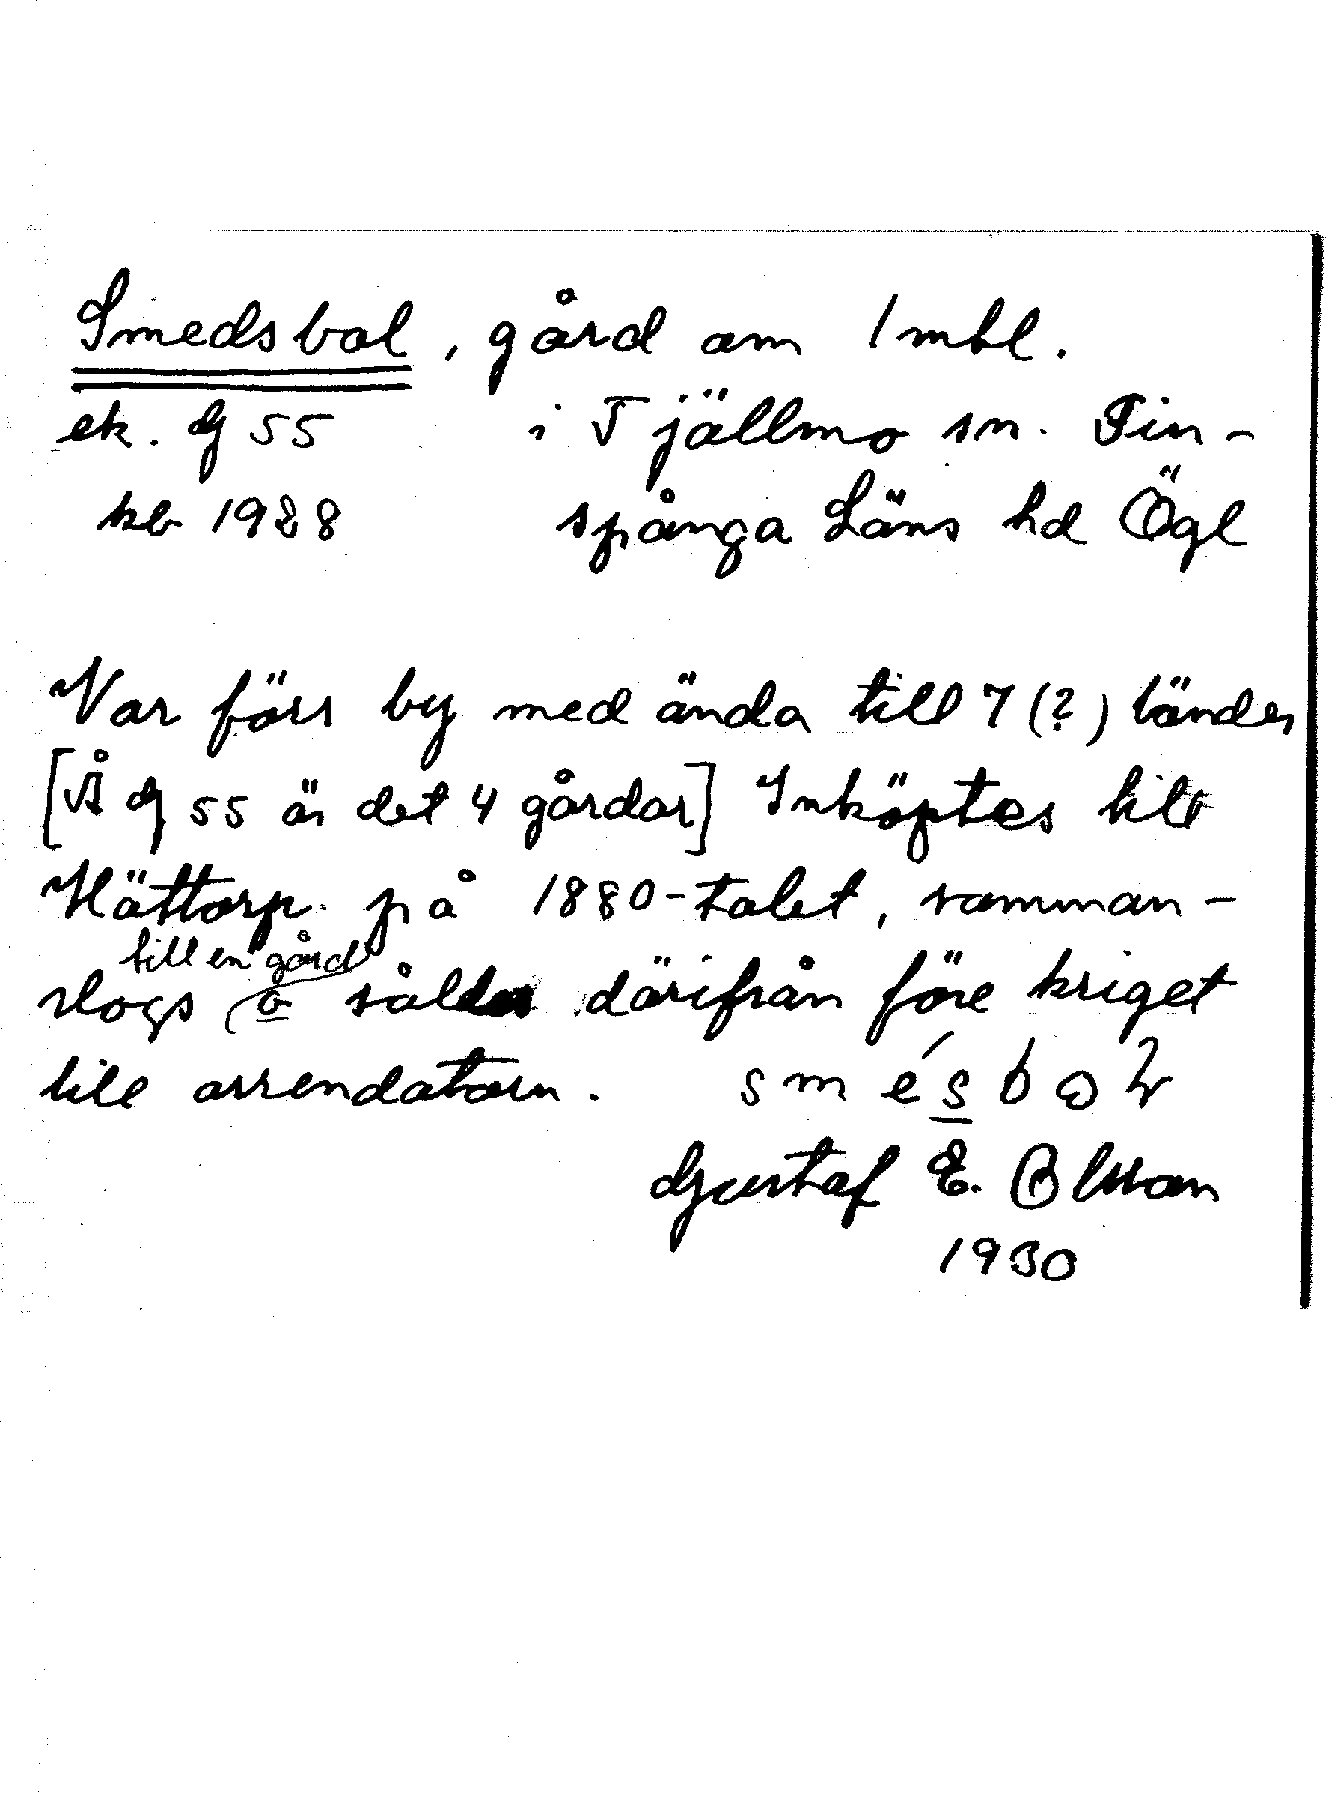 Smedsbol, gård om 1 mtl.
ek. G 55 i Tjällmo sn. Fin-
kb 1928 spånga Läns hd Ögl
Var förs by med ända till 7 (?) bönder
[På G 55 är det 4 gårdar] Inköptes till
Hättorp på 1880-talet, samman-
till en gård
slogs o såldes därifrån före kriget
till arrendatorn. smésbol
Gustaf E. Olsson
1930